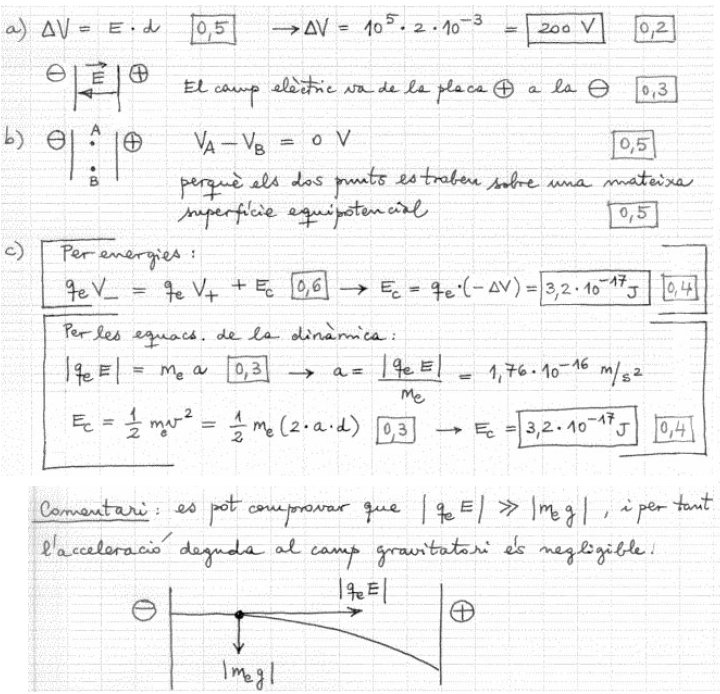 a) ΔV = E · d [0,5] → ΔV = 10⁵ · 2 · 10⁻³ = [200 V] [0,2]
⊖ E⃗ ⊕ El camp elèctric va de la placa ⊕ a la ⊖ [0,3]
b) ⊖ A B ⊕ V_A − V_B = 0 V [0,5]
perquè els dos punts es troben sobre una mateixa
superfície equipotencial [0,5]
c) Per energies :
q_e V_− = q_e V_+ + E_c [0,6] → E_c = q_e·(−ΔV) = [3,2·10⁻¹⁷ J] [0,4]
Per les equacs. de la dinàmica :
|q_e E| = m_e a [0,3] → a = |q_e E| / m_e = 1,76·10⁻¹⁶ m/s²
E_c = 1/2 m_e v² = 1/2 m_e (2·a·d) [0,3] → E_c = [3,2·10⁻¹⁷ J] [0,4]
Comentari : es pot comprovar que |q_e E| ≫ |m_e g| , i per tant
l'acceleració deguda al camp gravitatori és negligible.
|q_e E|
⊖ ⊕
|m_e g|